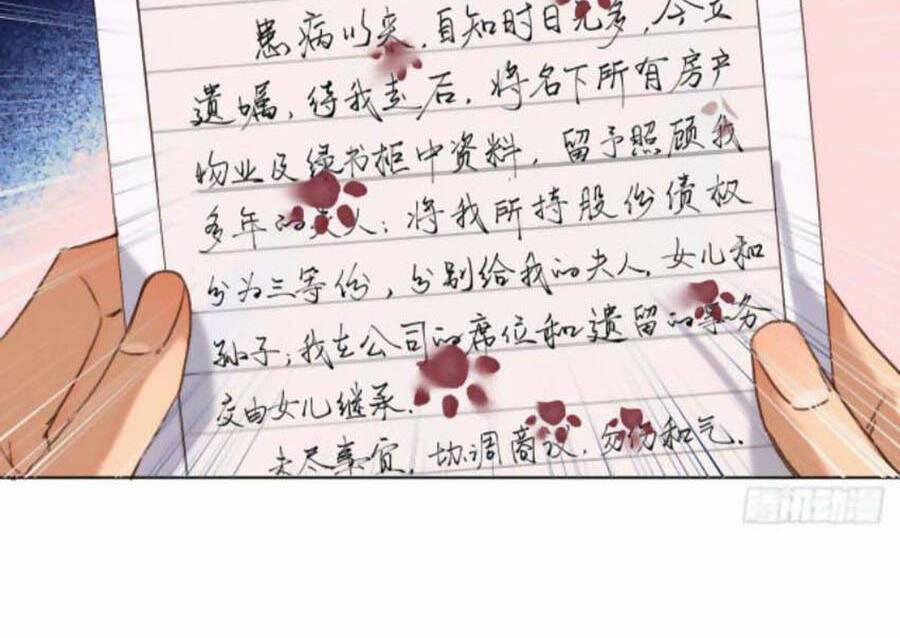 患病以来，自知时日无多，今立
遗嘱，待我走后，将名下所有房产
物业及绿书柜中资料，留予照顾我
多年的夫人；将我所持股份债权
分为三等份，分别给我的夫人，女儿和
孙子；我在公司的席位和遗留的事务
交由女儿继承.
未尽事宜，协调商议，勿伤和气.
腾讯动漫